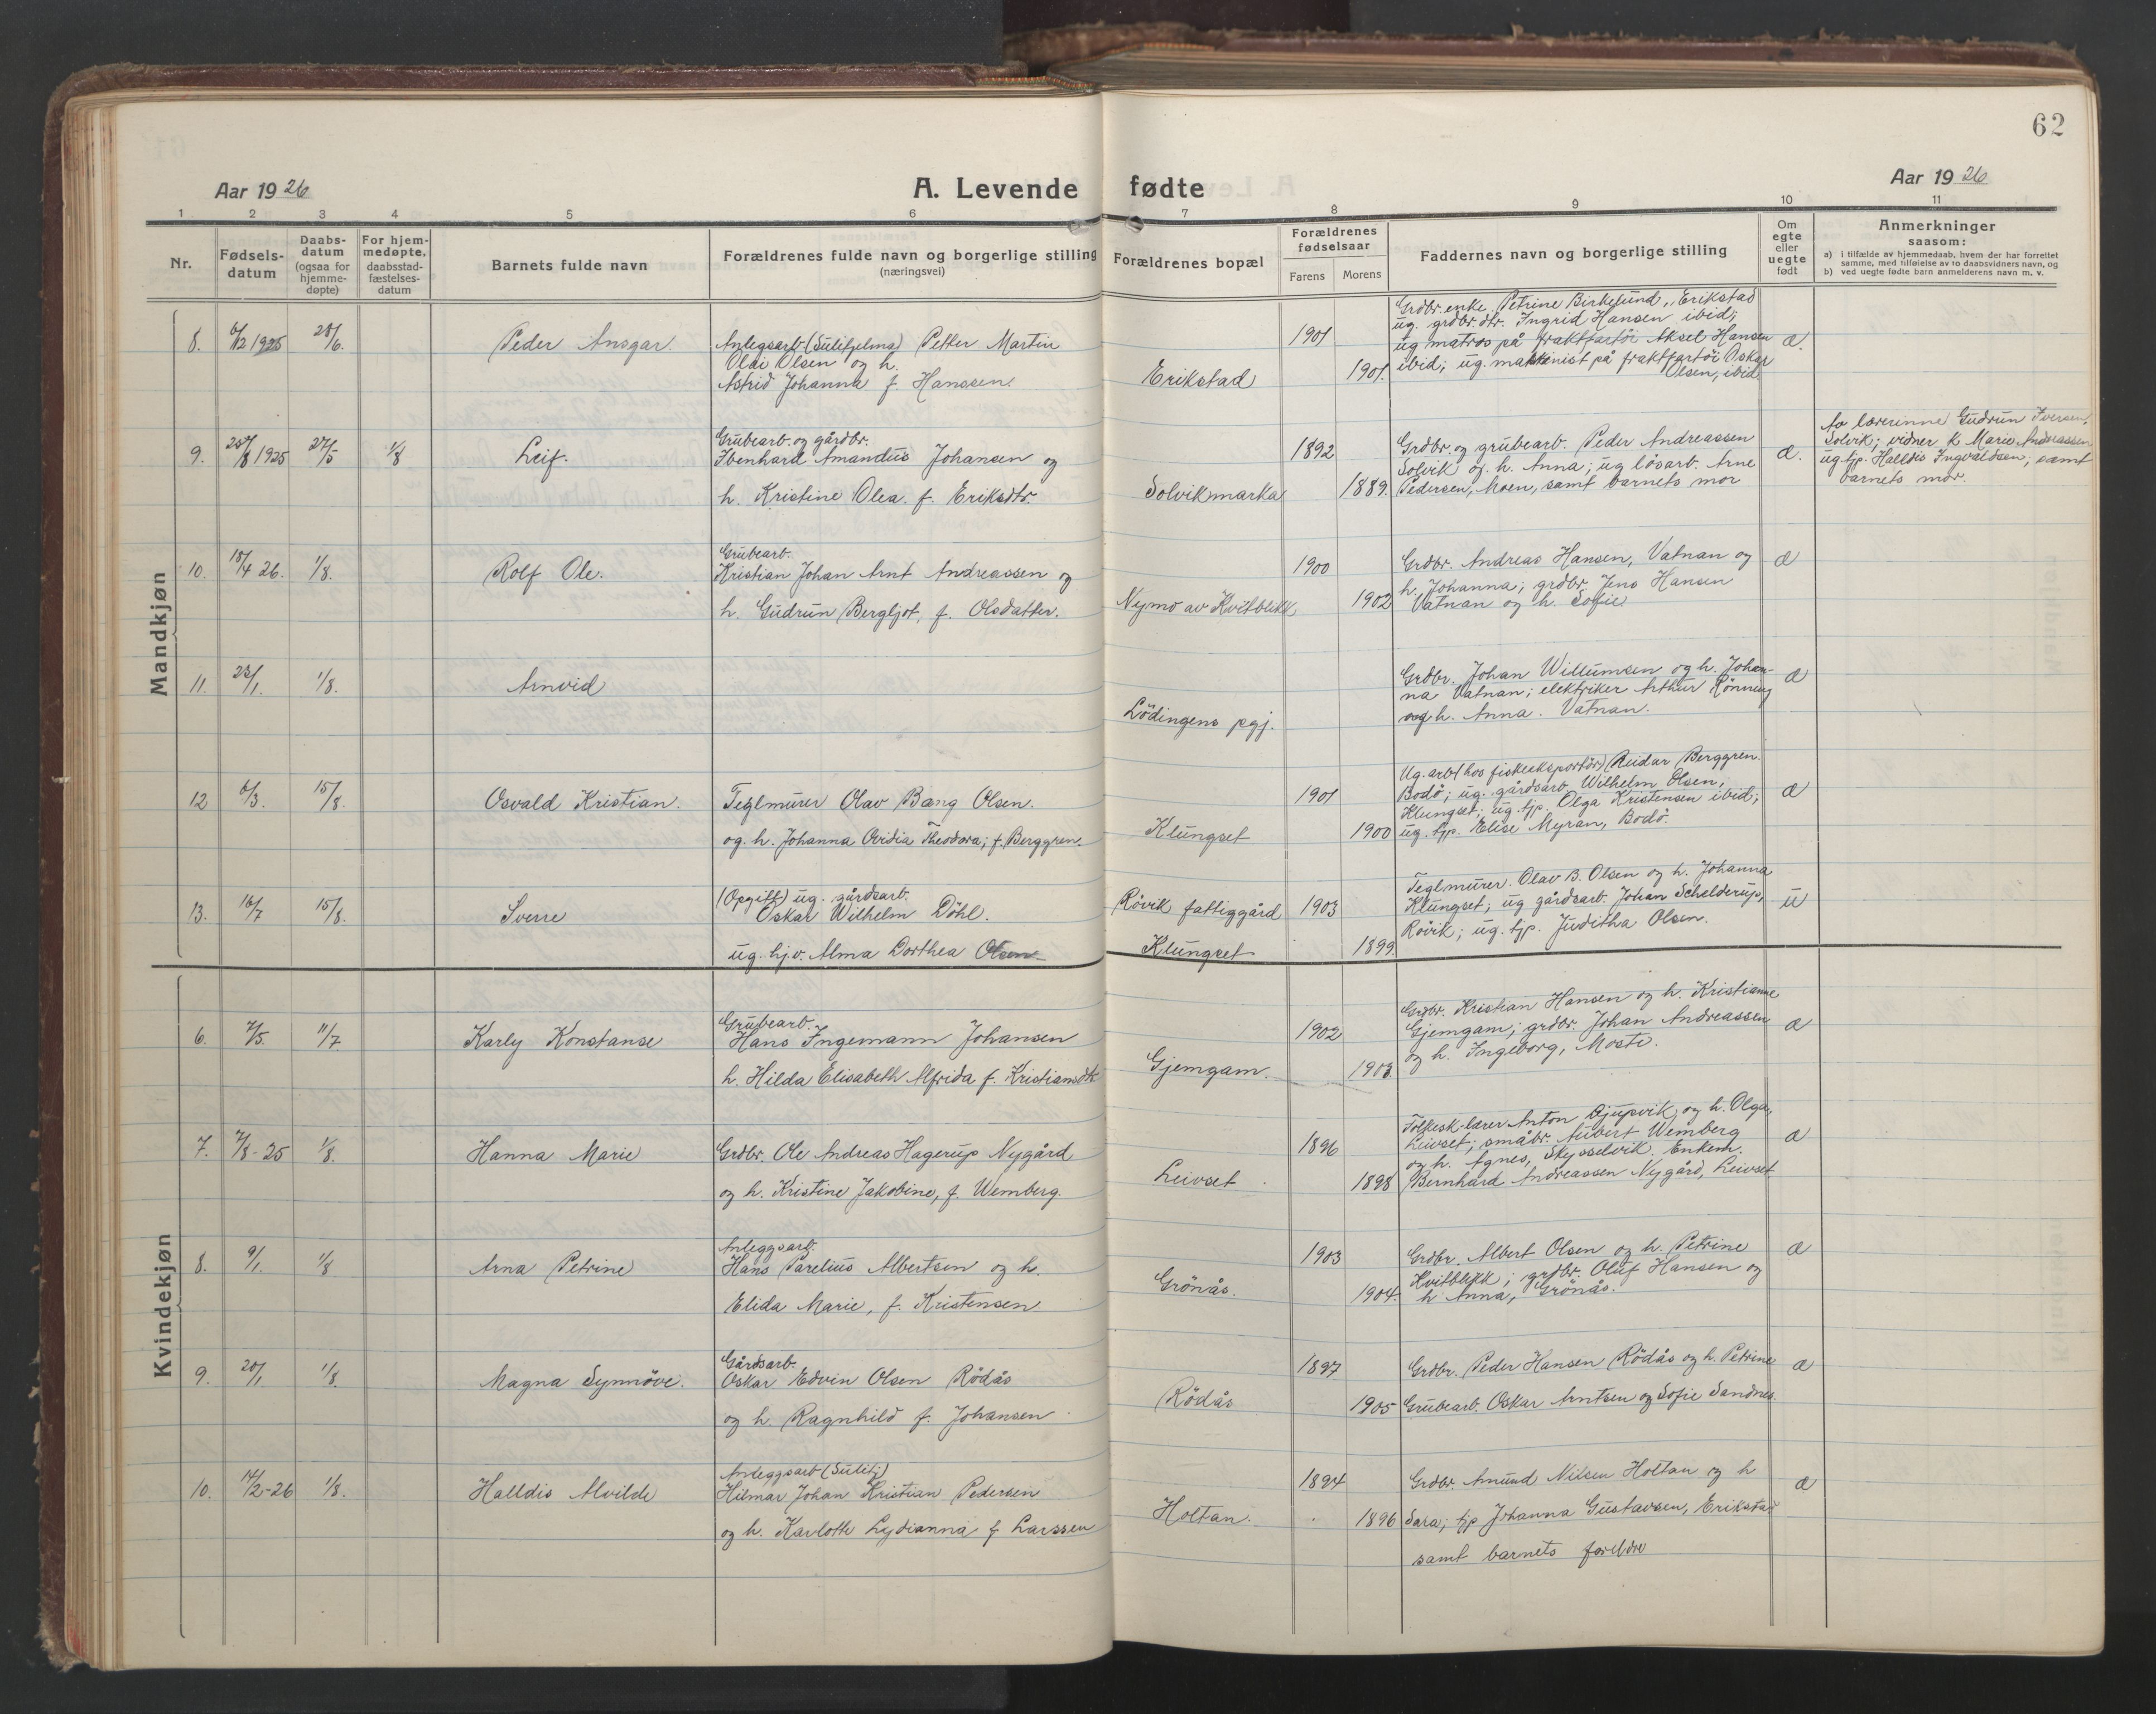 62
Aar 1926
A. Levende fødte
Aar 1926
1 2 3 4 5 6 7 8 9 10 11
Nr.
Fødsels-
datum
Daabs-
datum
(ogsaa for
hjemme-
døpte)
For hjem-
medøpte.
daabsstad-
fæstelses-
datum
Barnets fulde navn
Forældrenes fulde navn og borgerlige stilling
(næringsvei)
Forældrenes bopæl
Forældrenes
fødselsaar
Farens Morens
Faddernes navn og borgerlige stilling
Om
egte
eller
uegte
født
Anmerkninger
saasom:
a) i tilfælde av hjemmedaab, hvem der har forrettet
samme, med tilføielse av to daabsvidners navn, og
b) ved uegte fødte barn anmelderens navn m. v.
Mandkjøn
8. 6/12 1925 20/6. Peder Ansgar.
Anlegsarb. (Sulitjelma) Petter Martin
Oldi Olsen og h.
Astrid Johanna f. Hanssen.
Erikstad
1901
1901.
Grdbr. enke Petrine Birkelund, Erikstad
ug. grdbr. dtr. Ingrid Hansen ibid;
ug matros på fraktfartöi Aksel Hansen
ibid; ug. maskinist på fraktfartöi Oskar
Olsen, ibid.
æ.
9. 25/8 1925 27/5 1/8 Leif.
Grubearb. og gårdbr.
Ibenhard Amandus Johansen og
h. Kristine Olea. f. Eriksdtr.
Solvikmarka
1892
1889.
Grdbr. og grubearb. Peder Andreassen
Solvik og h. Anna; ug lösarb. Arne
Pedersen, Moen, samt barnets mor
æ.
Av lærerinne Gudrun Iversen,
Solvik; vidner k Marie Andreassen
ug. tjp. Halldis Ingvaldsen, samt
barnets mor.
10. 18/4 26. 1/8. Rolf Ole.
Grubearb.
Kristian Johan Arnt Andreassen og
h. Gudrun Bergljot, f. Olsdatter.
Nymo av Kvitblikk
1900
1902
Grdbr. Andreas Hansen, Vatnan og
h. Johanna; grdbr. Jens Hansen
Vatnan og h. Sofie
æ
11. 23/1. 1/8. Arnvid
Lödingens pgj.
Grdbr. Johan Willumsen og h. Johan-
na Vatnan; elektriker Arthur Rönning
og h. Anna. Vatnan.
æ
12 6/3. 15/8. Osvald Kristian.
Teglmurer Olav Bang Olsen.
og. h. Johanna Ovidia Theodora; f. Berggren.
Klungset
1901
1900
Ug. arb (hos fiskeeksportör) Reidar Berggren.
Bodö; ug. gårdsarb. Wilhelm Olsen;
Klungset; ug. tjp. Olga Kristensen ibid;
ug. tjp. Elise Myran, Bodö.
æ
13. 16/7 15/8. Sverre
(Opgitt) ug. gårdsarb.
Oskar Wilhelm Döhl.
ug. hj.v. Alma Dorthea Olsen
Rövik fattiggård
Klungset
1903
1899.
Teglmurer. Olav B. Olsen og h. Johanna
Klungset; ug gårdsarb. Johan Schelderup,
Rövik; ug. tjp. Juditha Olsen.
u
Kvindekjøn
6. 7/5. 11/7 Karly Konstanse
Grubearb.
Hans Ingemann Johansen
h. Hilda Elisabeth Alfrida f. Kristiansdtr
Gjemgam.
1902
1903.
Grdbr. Kristian Hansen og h. Kristianne
Gjemgam; grdbr. Johan Andreassen
og h. Ingeborg, Mosti.
æ
7. 7/8-25 1/8. Hanna Marie
Grdbr. Ole Andreas Hagerup Nygård
og h. Kristine Jakobine, f. Wemberg.
Leivset
1896
1898
Folkesk-lærer Anton Djupvik og h. Olga,
Leivset; småbr. Aubert Wemberg
og h. Agnes, Skysselvik. Enkem.
Bernhard Andreassen Nygård, Leivset
æ
8. 9/1. 1/8 Arna Petrine
Anleggsarb.
Hans Parelius Albertsen og h.
Elida Marie, f. Kristensen
Grönås.
1903
1904.
Grdbr. Albert Olsen og h. Petrine
Kvitblikk; grdbr. Oluf Hansen og
h Anna, Grönås.
æ
9. 20/1 1/8. Magna Synnöve.
Gårdsarb.
Oskar Edvin Olsen Rödås
og h. Ragnhild f. Johansen
Rödås
1897
1905
Grdbr. Peder Hansen Rödås og h. Petrine
Grubearb. Oskar Arntsen og Sofie Sandnes.
æ
10. 14/2-26 1/8. Halldis Alvilde
Anleggsarb (Sulitj)
Hilmar Johan Kristian Pedersen
og h. Karlotte Lydianna f Larssen
Holtan.
1894
1896
Grdbr. Amund Nilsen Holtan og h
Sara; tjp Johanna Gustavsen, Erikstad
samt barnets foreldre
æ